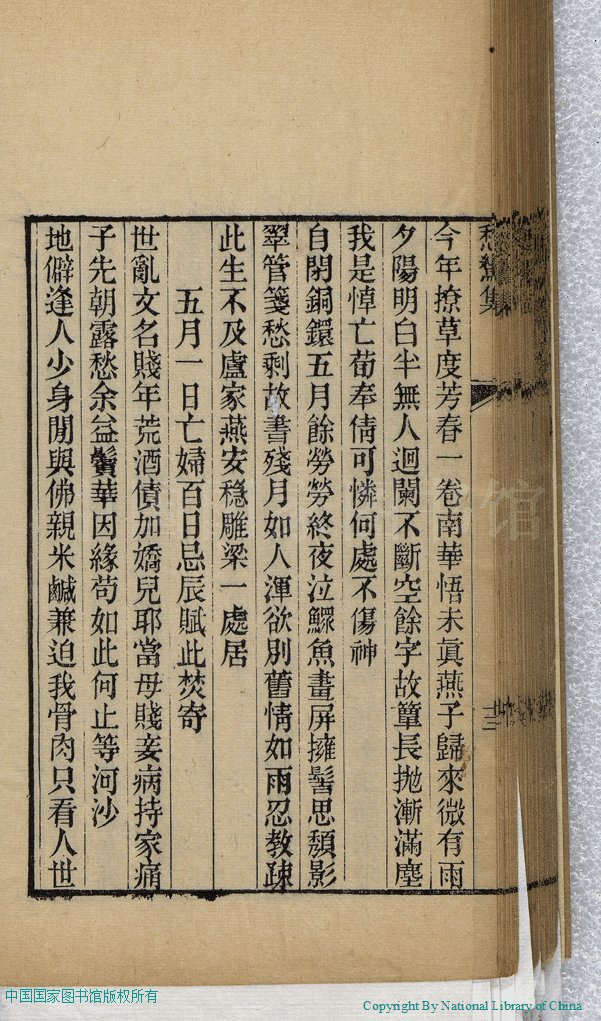 集
今年撩草度芳春一卷南華悟未眞燕子歸來微有雨
夕陽明白半無人迴闌不斷空餘字故簟長拋漸滿塵
我是悼亡荀奉倩可憐何處不傷神
自閉銅鐶五月餘勞勞終夜泣鰥魚畫屏擁髻思頽影
翠管箋愁剩故書殘月如人渾欲別舊情如雨忍教疎
此生不及盧家燕安穩雕梁一處居
五月一日亡婦百日忌辰賦此焚寄
世亂文名賤年荒酒債加嬌兒耶當母賤妾病持家痛
子先朝露愁余益鬢華因緣苟如此何止等河沙
地僻逢人少身閒與佛親米鹹兼迫我骨肉只看人世
中国国家图书馆版权所有
Copyright By National Library of China